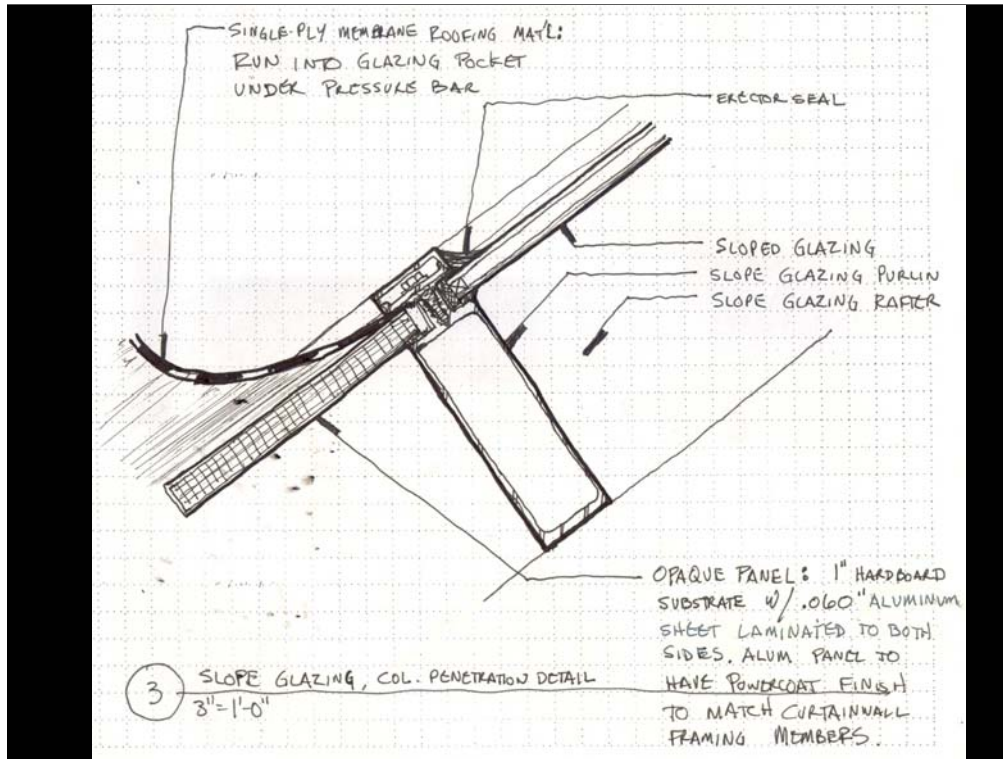 SINGLE-PLY MEMBRANE ROOFING MAT'L:
RUN INTO GLAZING POCKET
UNDER PRESSURE BAR
ERECTOR SEAL
SLOPED GLAZING
SLOPE GLAZING PURLIN
SLOPE GLAZING RAFTER
OPAQUE PANEL: 1" HARDBOARD
SUBSTRATE W/ .060" ALUMINUM
SHEET LAMINATED TO BOTH
SIDES. ALUM PANEL TO
HAVE POWERCOAT FINISH
TO MATCH CURTAINWALL
FRAMING MEMBERS.
3 SLOPE GLAZING, COL. PENETRATION DETAIL
3"=1'-0"